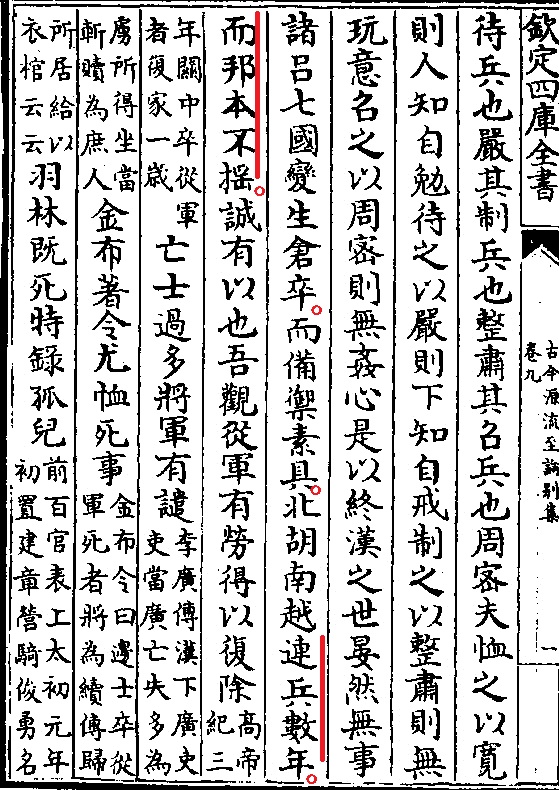 欽定四庫全書
古今源流至論別集
卷九
一
待兵也嚴其制兵也整肅其召兵也周密夫恤之以寛
則人知自勉待之以嚴則下知自戒制之以整肅則無
玩意召之以周密則無姦心是以終漢之世晏然無事
諸吕七國變生倉卒。而備禦素具。北胡南越連兵數年。
而邦本不揺。誠有以也吾觀從軍有勞得以復除高帝紀三
年關中卒從軍者復家一歳亡士過多將軍有譴李廣傳漢下廣吏吏當廣亡失多為
虜所得坐當斬贖為庶人金布著令尤恤死事金布令曰邊士卒從軍死者將為續傳歸
所居給以衣棺云云羽林既死特錄孤兒前百官表工太初元年初置建章營騎俊勇名